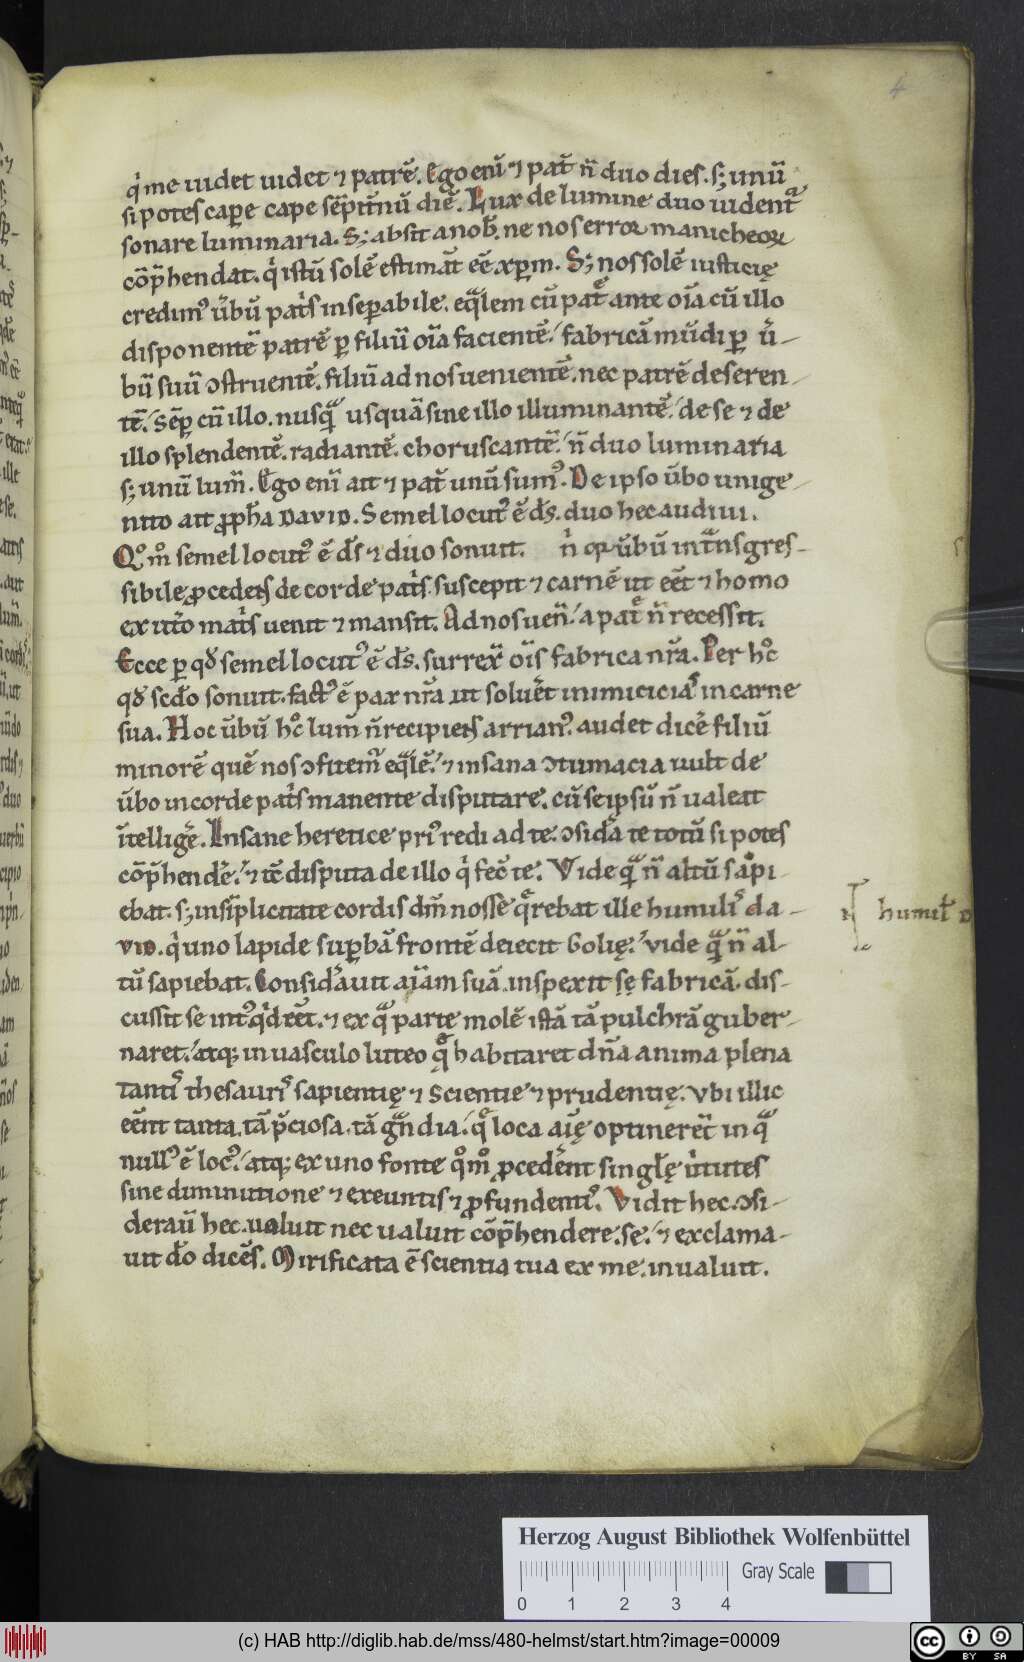 4
q̍ me uidet uidet ⁊ patrē. Ego eni̅ ⁊ pat̅ n̅ duo dies. s; unū
si potes cape cape sēpit̅nū diē. Lux de lumine duo uident᷑
sonare luminaria. S; absit a nob̅. ne nos error manicheoꝝ
cōp̅hendat. q̍ istū solē estimat̅ ee̅ xp̅m. S; nos solē iusticię
credim᷒ u̅bū pat̍s insepabile. eq̅lem cū pat̅ ante oi̅a cū illo
disponente̅ patrē ꝑ filiū oi̅a faciente̅. fabricā mūdi ꝑ u̅-
bū suū ↄstruente̅. filiū ad nos uenientē. nec patrē deseren-
tē. sēꝑ cū illo. nusq̅ usquā sine illo illuminantē. de se ⁊ de
illo splendentē. radiantē. choruscantē. n̅ duo luminaria
s; unū lum̅. Ego eni̅ ait ⁊ pat̅ unū sum᷒. De ipso u̅bo unige-
nito ait ꝓph̅a DAVID. Semel locut᷒ ē d̅s. duo hec audiui.
Qͦmͦ semel locut᷒ ē d̅s ⁊ duo sonuit. n̍ qr u̅bū int̅nsgres-
sibile ꝓcedens de corde pat̍s. suscepit ⁊ carnē ut ee̅t ⁊ homo
ex ut̍o mat̍s uenit ⁊ mansit. Ad nos uen̅. a pat̅ n̅ recessit.
Ecce ꝑ qd̅ semel locut᷒ ē d̅s. surrex̅ oi̅s fabrica nr̅a. Per hͦc
qd̅ scd̅o sonuit. fact᷒ ē pax nr̅a ut solue̅t inimicicias in carne
sua. Hoc u̅bū hͦc lum̅ n̅ recipiens arrian᷒. audet dice̅ filiū
minorē quē nos ↄfitem᷑ eq̅lē. ⁊ insana ↄtumacia uult de
u̅bo in corde pat̍s manente disputare. cū seipsū n̅ ualeat
i̅tellige̅. Insane heretice pri᷒ redi ad te. ↄsid̅a te totū si potes
cōp̅hend̅e. ⁊ tc̅ disputa de illo q̍ fec̅ te. Vide q̅ n̅ altū sapi-
ebat. s; in si̅plicitate cordis dm̅ nosse q̅rebat ille humilis da-
VID. q̍ uno lapide sup̱bā frontē deiecit Golię. vide q̅ n̅ al-
tū sapiebat. Consid̅auit ai̅am suā. inspexit sę fabricā. dis-
cussit se int᷒ q̍d ee̅t. ⁊ ex q̅ parte molē istā tā pulchrā guber-
naret. atq; in uasculo luteo q̅ habitaret dn̅a anima plena
tantis thesauris sapientię ⁊ scientie ⁊ prudentię. vbi illic
ee̅nt tanta. tā p̅ciosa. tā g̅ndia. q̅ loca aię optinere̅t in q̅
null᷒ ē loc᷒. atq; ex uno fonte qͦmͦ ꝓcede̅nt singlę u̍tutes
sine diminutione ⁊ exeuntis ⁊ ꝓfundenti᷒. Vidit hec. ↄsi-
derau̅ hec. ualuit nec ualuit cōp̅hendere. se. ⁊ exclama-
uit d̅o dicēs. Mirificata ē scientia tua ex me. inualuit.
humil̅ D
Herzog August Bibliothek Wolfenbüttel
Gray Scale
0 1 2 3 4
(c) HAB http://diglib.hab.de/mss/480-helmst/start.htm?image=00009
cc BY SA